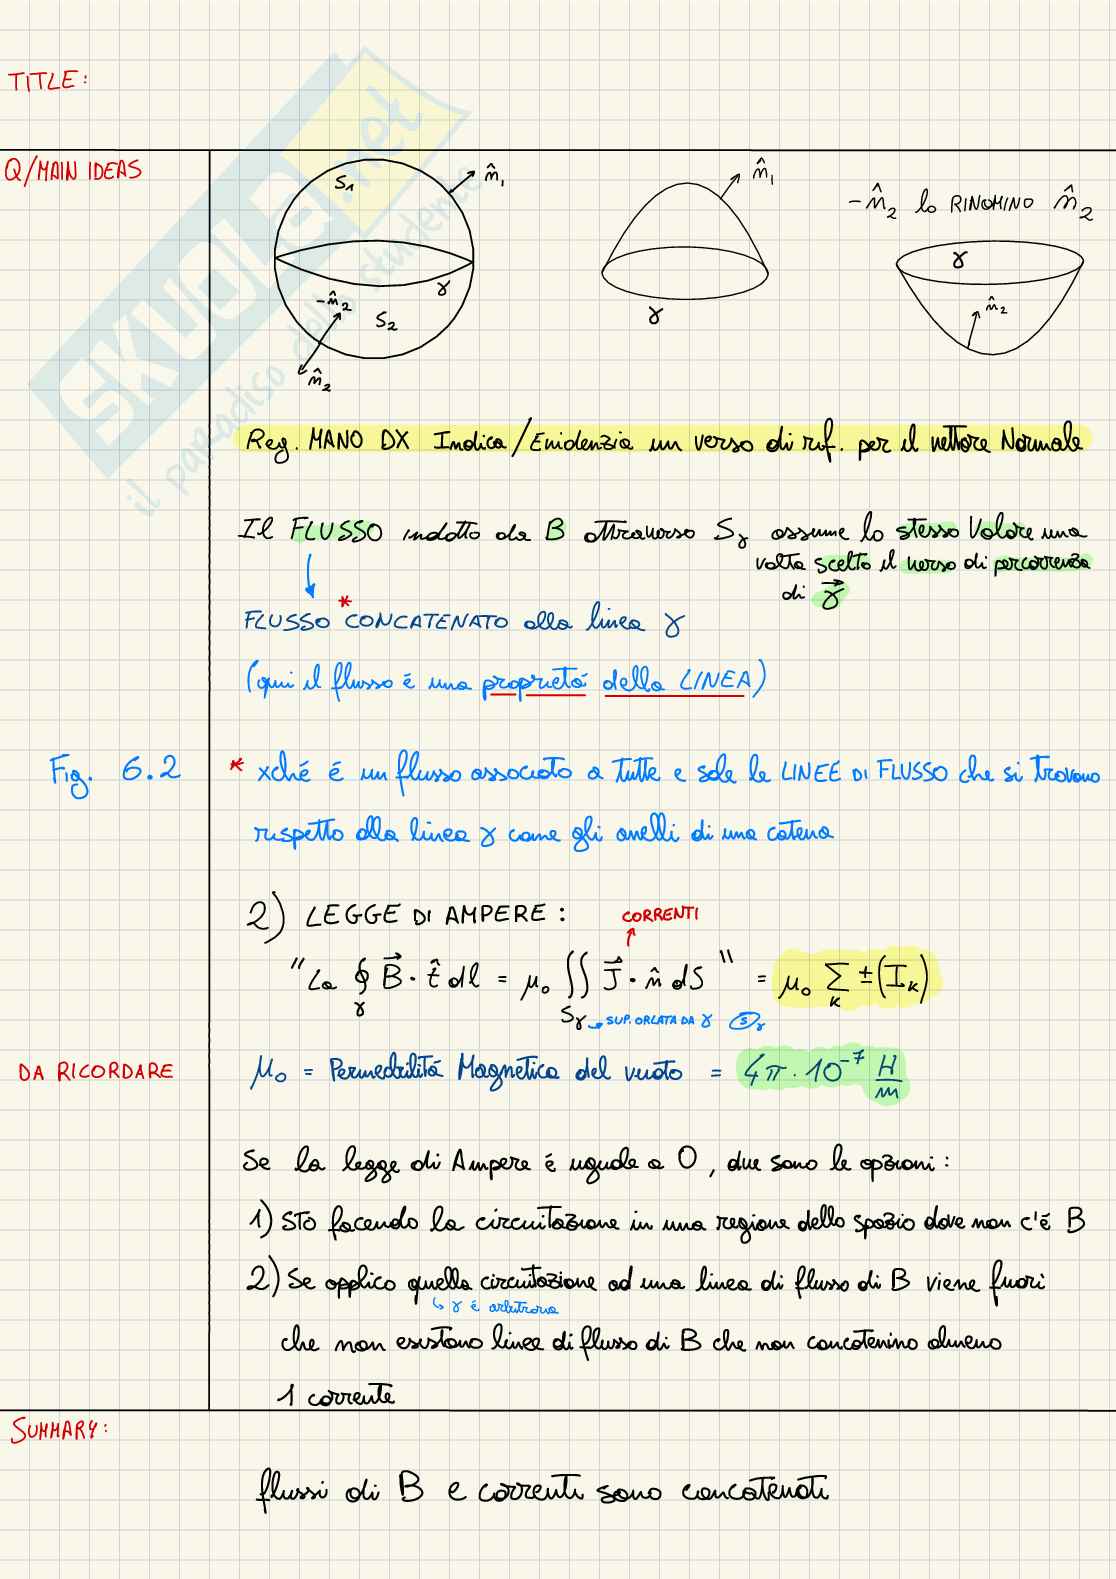 TITLE:
Q/MAIN IDEAS
S1
n̂1
γ
-n̂2
S2
n̂2
n̂1
γ
-n̂2 lo RINOMINO n̂2
γ
n̂2
Reg. MANO DX Indica/Evidenzia un verso di rif. per il vettore Normale
Il FLUSSO indotto da B attraverso Sγ assume lo stesso Valore una
volta scelto il verso di percorrenza
di γ⃗
FLUSSO *CONCATENATO alla linea γ
(qui il flusso é una proprietá della LINEA)
Fig. 6.2
* xché é un flusso associato a tutte e sole le LINEE DI FLUSSO che si trovano
rispetto alla linea γ come gli anelli di una catena
2) LEGGE DI AMPERE:
CORRENTI
"La ∮γ B⃗ · t̂ dl = μ0 ∬Sγ J⃗ · n̂ dS" = μ0 ∑K ±(IK)
SUP. ORLATA DA γ Sγ
DA RICORDARE
μ0 = Permeabilitá Magnetica del vuoto = 4π · 10⁻⁷ H/m
Se la legge di Ampere é uguale a 0, due sono le opzioni:
1) STO facendo la circuitazione in una regione dello spazio dove non c'é B
2) Se applico quella circuitazione ad una linea di flusso di B viene fuori
γ é arbitraria
che non esistano linee di flusso di B che non concatenino almeno
1 corrente
SUMMARY:
flussi di B e correnti sono concatenati
SKUOLA.net
il paradiso dello studente